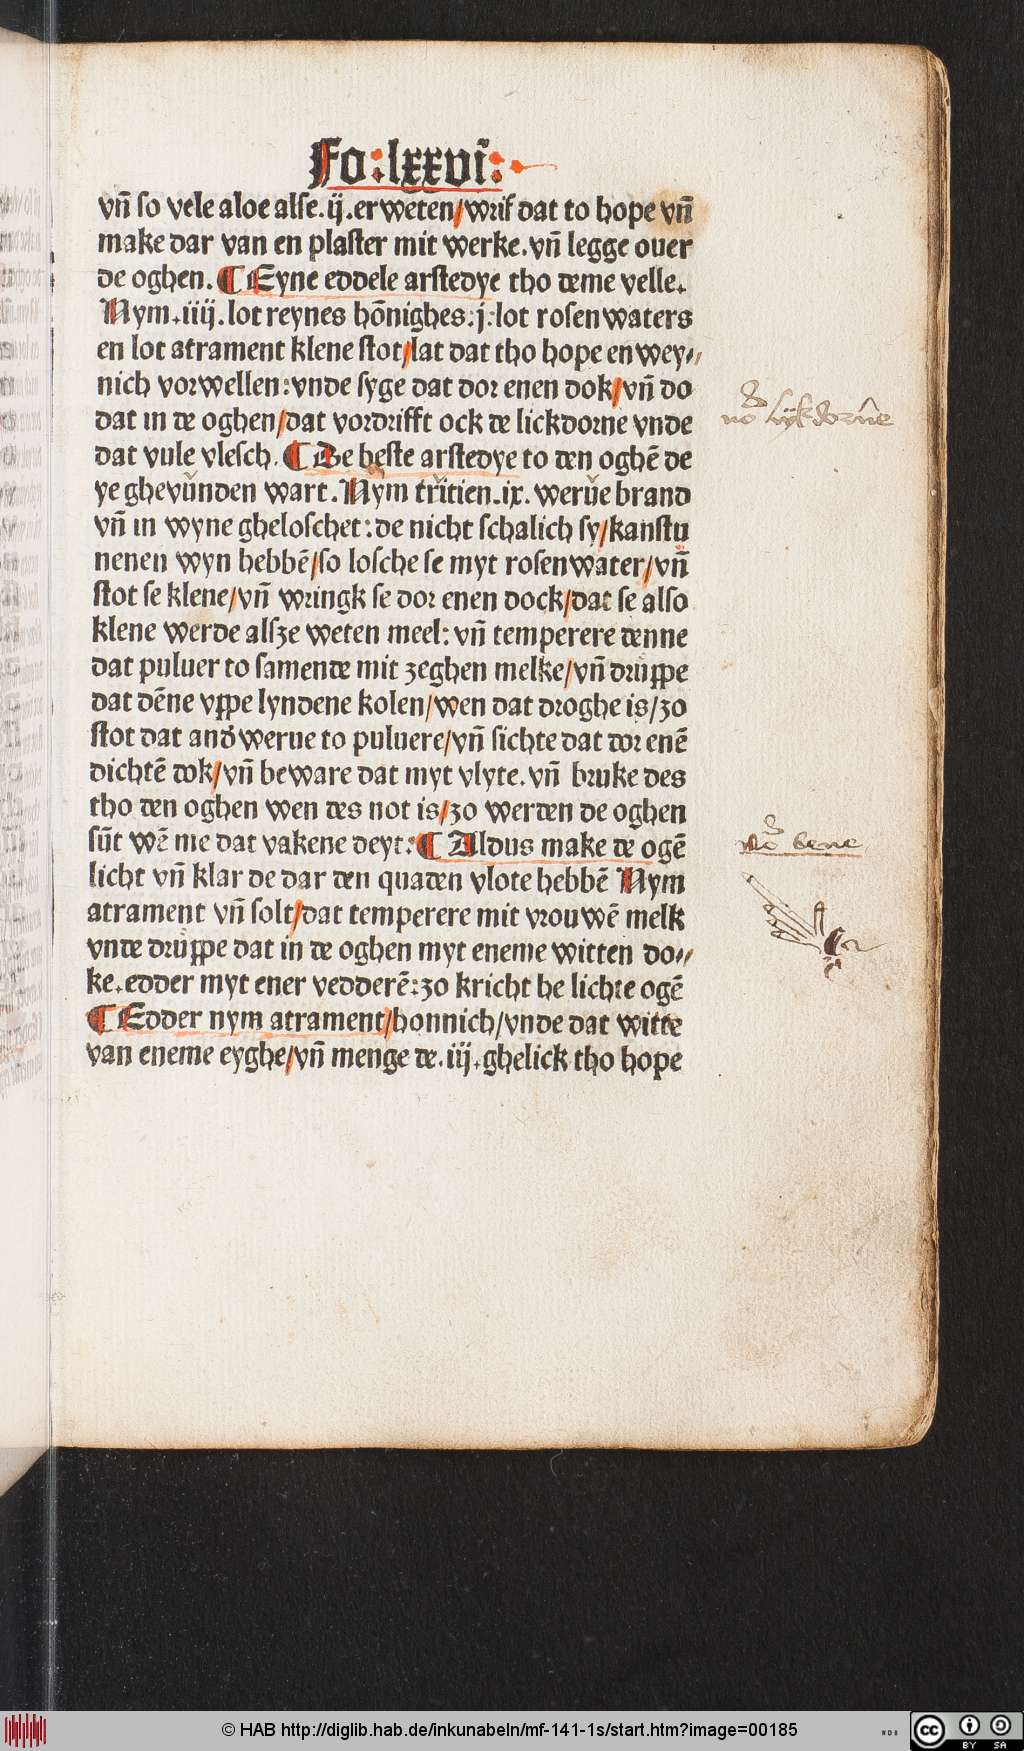 Fo:lxxvi:
vn̄ so vele aloe alse.ij.erweten/wrif dat to hope vn̄
make dar van en plaster mit werke.vn̄ legge ouer
de oghen. ¶ Eyne eddele arstedye tho deme velle.
Nym.iiij.lot reynes hōnighes:j:lot rosenwaters
en lot atrament klene stot/lat dat tho hope en wey⸗
nich vorwellen:vnde syge dat dor enen dok/vn̄ do
dat in de oghen/dat vordrifft ock de lickdorne vnde
dat vule vlesch. ¶ De beste arstedye to den oghē de
ye ghevūnden wart. Nym tritien.ix. werue brand
vn̄ in wyne gheloschet:de nicht schalich sy/kanstu
nenen wyn hebbē/so losche se myt rosenwater/vn̄
stot se klene/vn̄ wringk se dor enen dock/dat se also
klene werde alsze weten meel: vn̄ temperere denne
dat puluer to samende mit zeghen melke/vn̄ drůppe
dat dēne vppe lyndene kolen/wen dat droghe is/zo
stot dat anďwerue to puluere/vn̄ sichte dat dor enē
dichtē dok/vn̄ beware dat myt vlyte.vn̄ bruke des
tho den oghen wen des not is/zo werden de oghen
sūt wē me dat vakene deyt: ¶ Aldus make de ogē
licht vn̄ klar de dar den quaden vlote hebbē Nym
atrament vn̄ solt/dat temperere mit vrouwē melk
vnde drůppe dat in de oghen myt eneme witten do⸗
ke.edder myt ener vedderē:zo kricht he lichte ogē
¶ Edder nym atrament/honnich/vnde dat witte
van eneme eyghe/vn̄ menge de.iij.ghelick tho hope
bene
© HAB http://diglib.hab.de/inkunabeln/mf-141-1s/start.htm?image=00185
WDB
cc BY SA